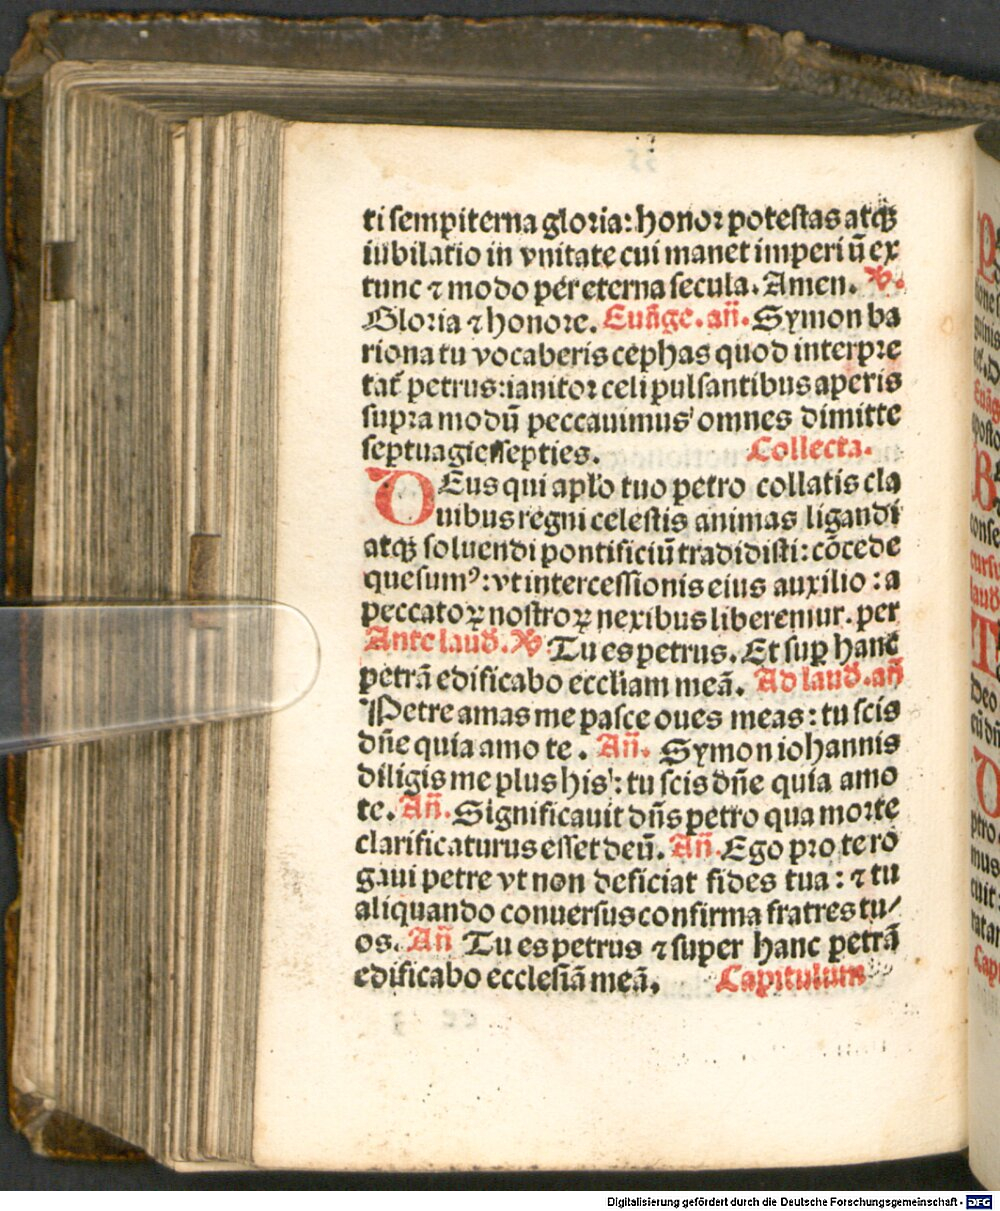 ti sempiterna gloria: honor potestas atqꝫ
iubilatio in vnitate cui manet imperiū ex
tunc ⁊ modo per eterna secula. Amen. ℣.
Gloria ⁊ honore. Euāge. añ. Symon ba
riona tu vocaberis cephas quod interpre
tat᷑ petrus: ianitor celi pulsantibus aperis
supra modū peccauimus omnes dimitte
septuagiessepties. Collecta.
DEus qui apl'o tuo petro collatis cla
uibus regni celestis animas ligandi
atqꝫ soluendi pontificiū tradidisti: cōcede
quesumꝰ: vt intercessionis eius auxilio: a
peccatoꝝ nostroꝝ nexibus liberemur. per
Ante laud. ℣. Tu es petrus. Et sup hanc
petrā edificabo eccliam meā. Ad laud. añ
Petre amas me pasce oues meas: tu scis
dñe quia amo te. Añ. Symon iohannis
diligis me plus his: tu scis dñe quia amo
te. Añ. Significauit dñs petro qua morte
clarificaturus esset deū. Añ. Ego pro te ro
gaui petre vt non deficiat fides tua: ⁊ tu
aliquando conuersus confirma fratres tu/
os. Añ Tu es petrus ⁊ super hanc petrā
edificabo ecclesiā meā. Capitulum
Digitalisierung gefördert durch die Deutsche Forschungsgemeinschaft - DFG